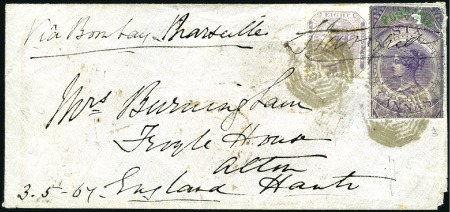 Via Bombay Marseille
EIGHT
Mrs Burningham
Froyle House
Alton
3.5.67 England Hants